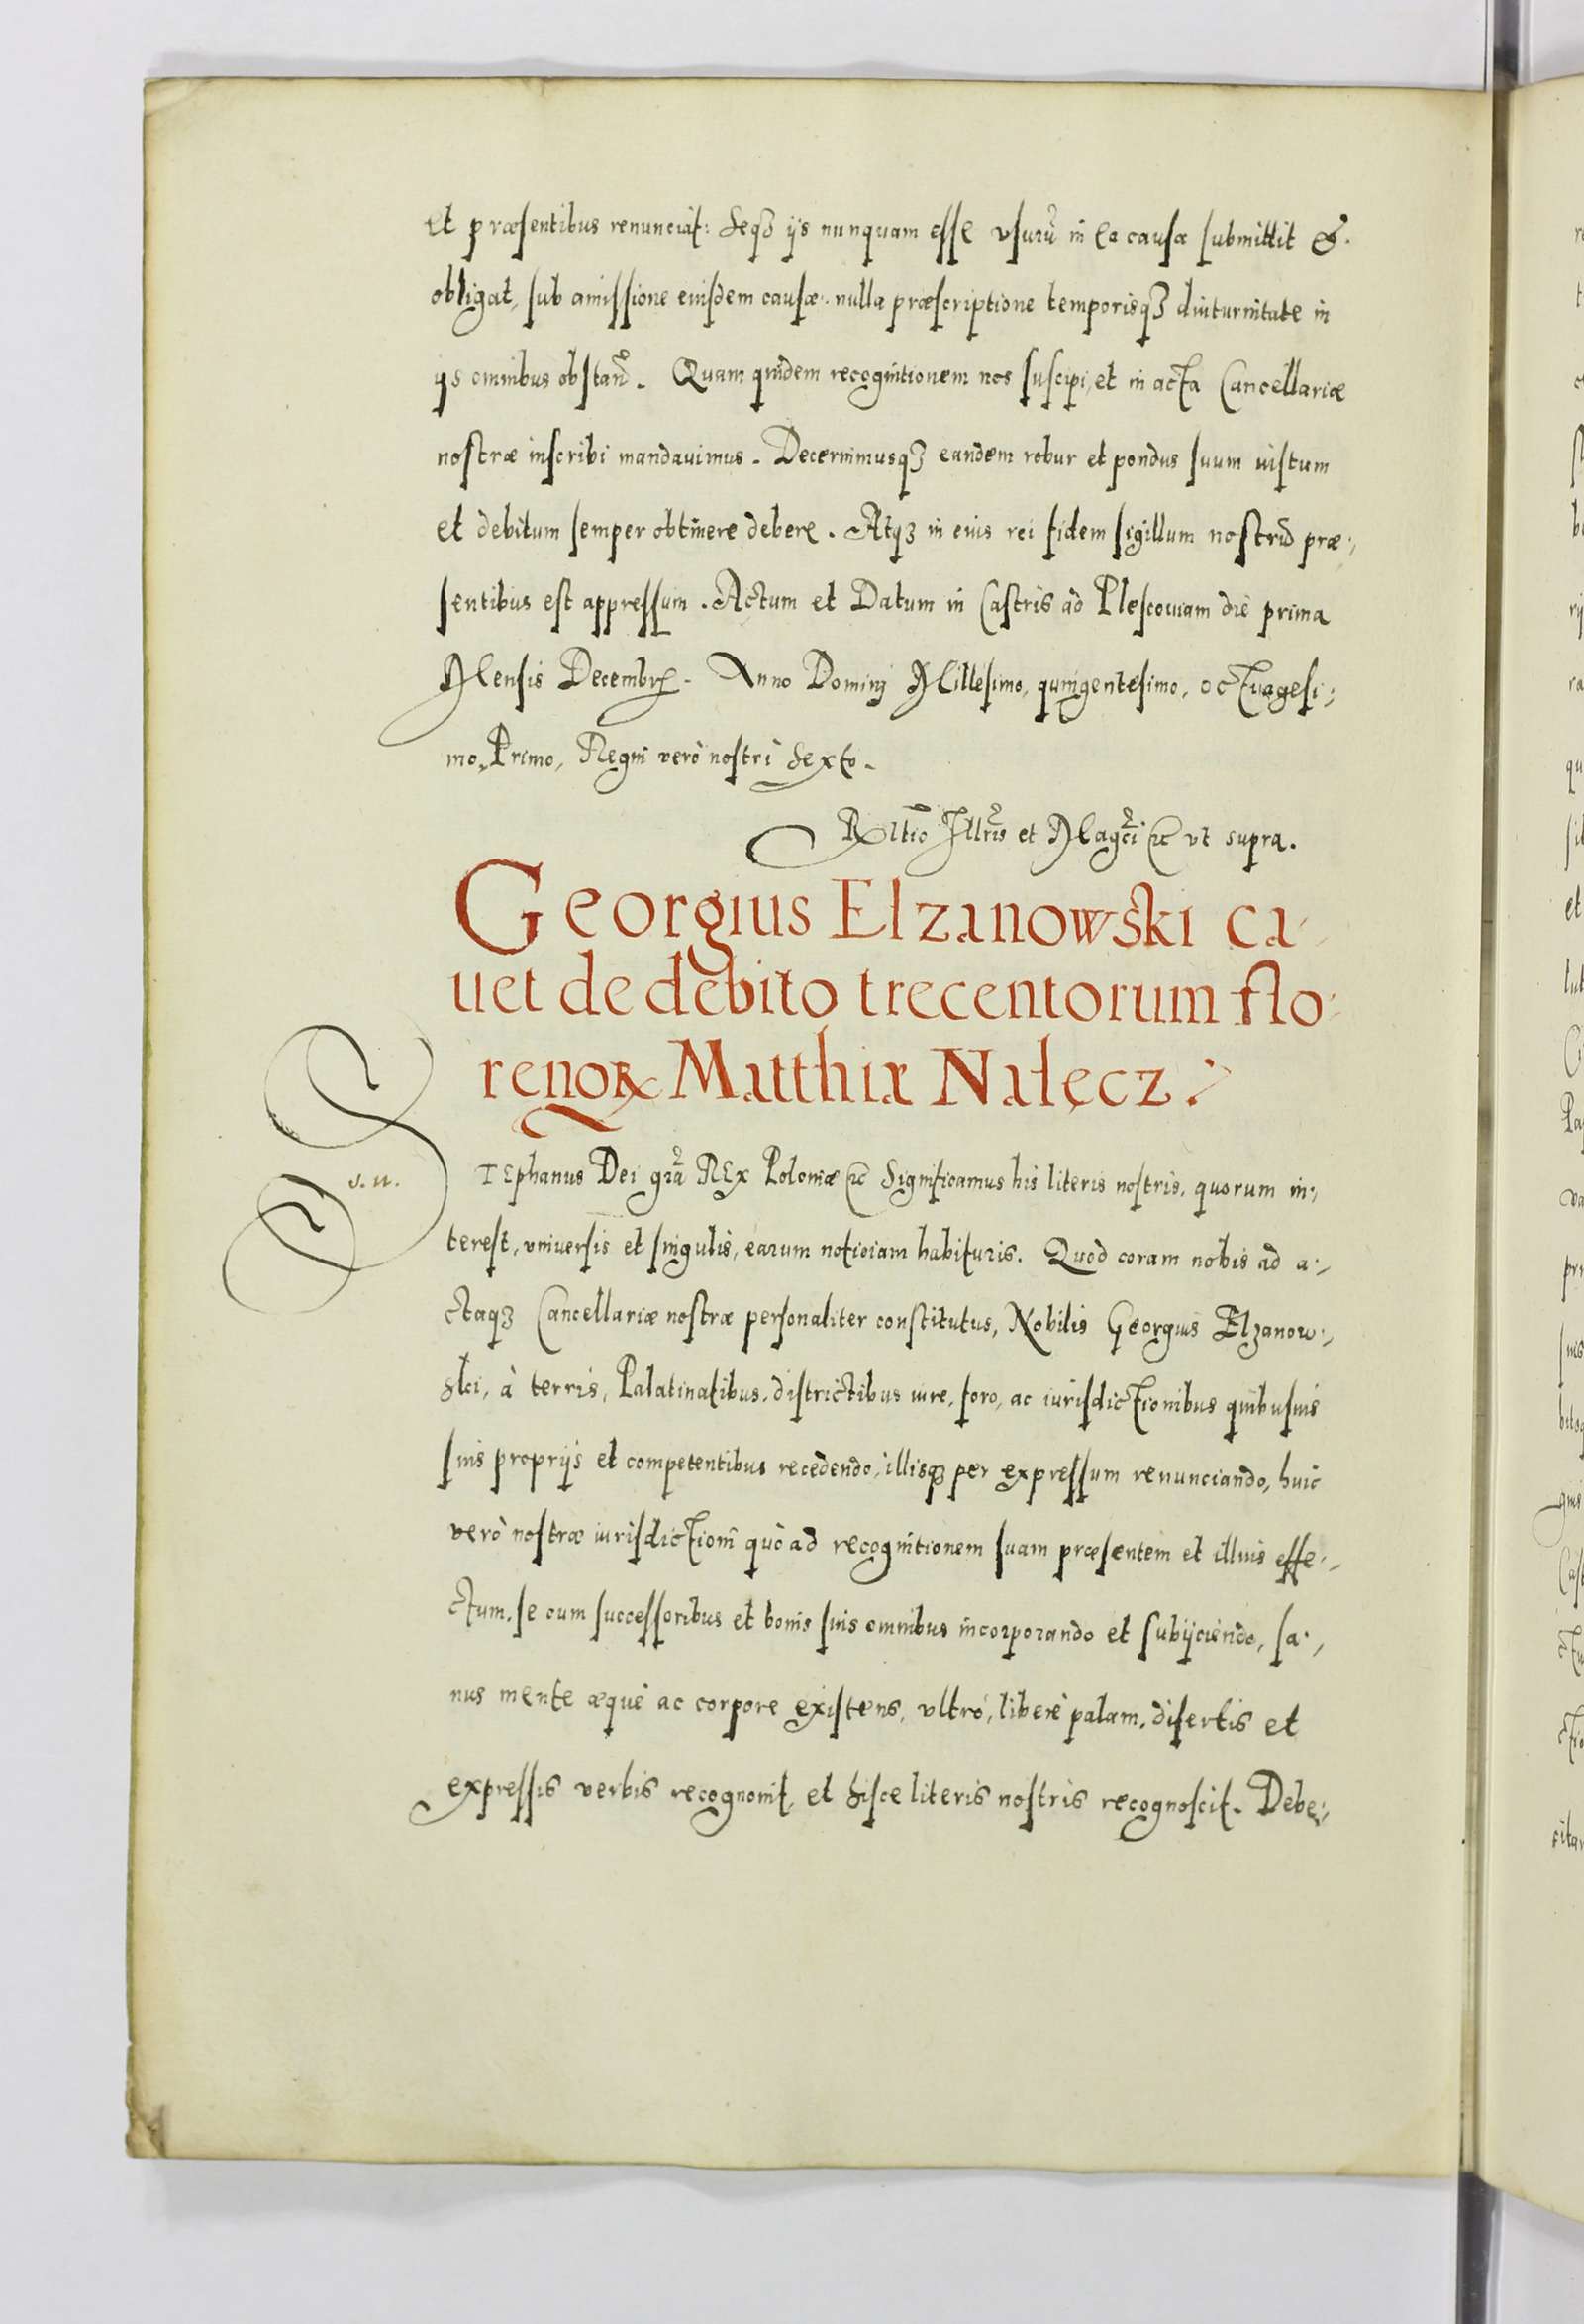 et præsentibus renunciat: Seqȝ ijs nunquam esse vsurũ in ea causa submittit &
obligat, sub amissione eiusdem causæ: nulla præscriptione temporisqȝ diuturnitate in
ijs omnibus obstañ. Quam quidem recognitionem nos suscipi, et in acta Cancellariæ
nostræ inscribi mandauimus. Decernimusqȝ eandem robur et pondus suum iustum
et debitum semper obtinere debere. Atqȝ in eius rei fidem sigillum nostrũ præ:,
sentibus est appressum. Actum et Datum in Castris ad Plescouiam die prima
Mensis Decembrꝭ. Anno Dominj Millesimo, quingentesimo, octuagesi:,
mo, Primo, Regni verò nostri Sexto.
Rltio Illris et Magci &c vt supra.
Georgius Elzanowski ca
uet de debito trecentorum flo:
renoꝝ Matthiæ Nałęcz.
S
s. n.
TEphanus Dei gra REx Poloniæ &c Significamus his literis nostris, quorum in:,
terest, vniuersis et singulis, earum noticiam habituris. Quod coram nobis ad a:,
ctaqȝ Cancellariæ nostræ personaliter constitutus, Nobilis Georgius Elzanow:,
ski, à terris, Palatinatibus, districtibus iure, foro, ac iurisdictionibus quibusuis
suis proprijs et competentibus recedendo, illisqȝ per expressum renunciando, huic
verò nostræ iurisdictioni quò ad recognitionem suam præsentem et illius effe:,
ctum, se cum successoribus et bonis suis omnibus incorporando et subijciendo, sa:,
nus mente æquè ac corpore existens, vltrò, liberè palam, disertis et
expressis verbis recognouit, et hisce literis nostris recognoscit. Debe:,